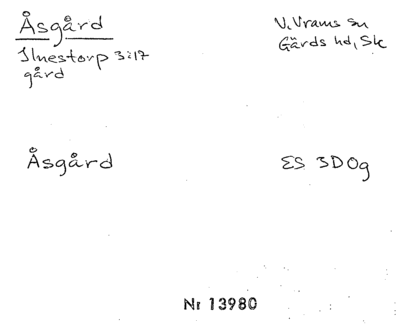 Åsgård
V. Vrams sn
Ilnestorp 3:17
Gärds hd, Sk
gård
Åsgård
ES 3D0g
Nr 13980